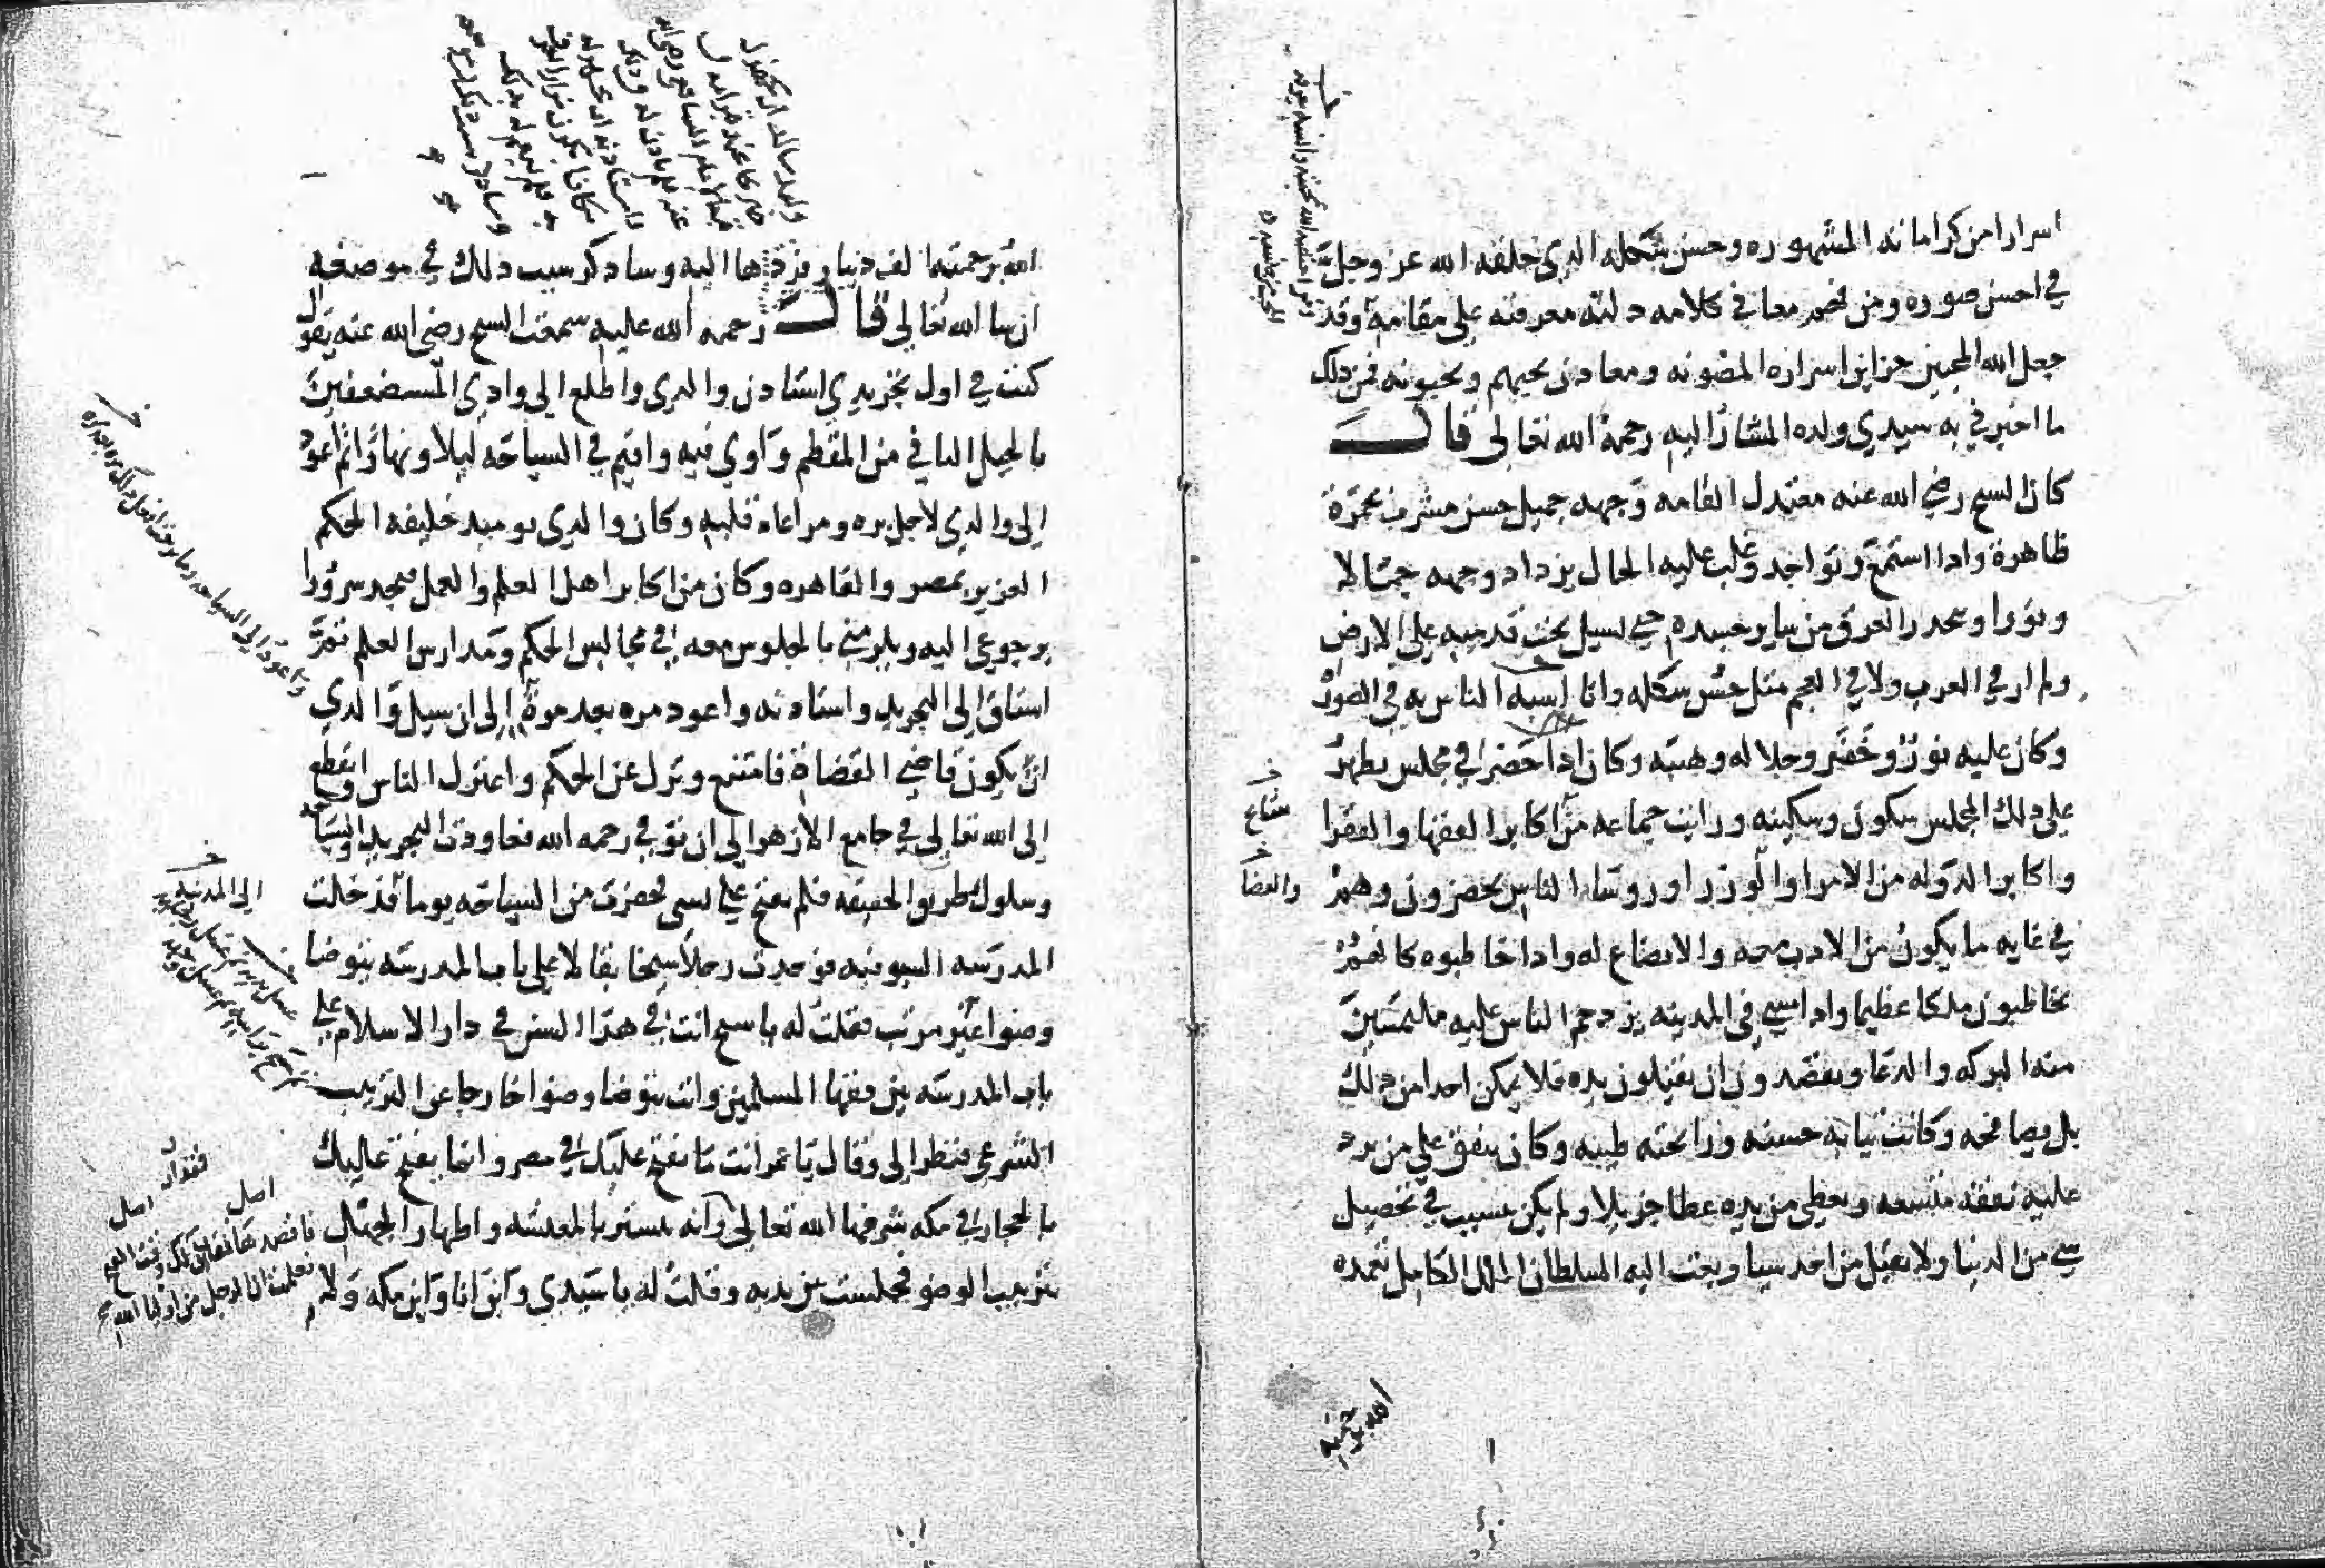 اسرارا من كراماته المشهوره وحسن شكله الدى خلقه الله عز وجل
في احسن صوره ومن فهم معاني كلامه دلته معرفته على مقامه وقد
جعل الله المحبين خزاين اسراره المصونه ومعادن يحبهم ويحبونه فمن ذلك
ما اخبرني به سيدي ولده المشار اليه رحمة الله تعالى قال
كان الشيح رضي الله عنه معتدل القامه وجهه جميل حسن مشرف بحمرة
ظاهرة وادا استمع وتواجد وغلب عليه الحال يزداد وجهه جمالا
ونورا وتحدر العرق من ساير جسده حتى يسيل تحت قدميه على الارض
ولم ار في العرب ولا في العجم مثل حسن شكله وانا اشبه الناس به في الصورة
وكان عليه نور وخفر وجلاله وهيبه وكان ادا حضر في مجلس يظهر
على دلك المجلس سكون وسكينه ورايت جماعه من اكابر الفقها والفقرا
واكابر الدوله من الامرا والوزرا وروسا الناس يحضرون وهم
في غايه ما يكون من الادب معه والاتضاع له وادا خاطبوه كانهم
يخاطبون ملكا عظيما وادا مشى في المدينه يزدحم الناس عليه ملتمسين
منه البركه والدعا ويقصدون ان يقبلون يده فلا يمكن احدا من دلك
بل يصافحه وكانت ثيابه حسنه ورايحته طيبه وكان ينفق على من يرد
عليه نفقه متسعه ويعطي من يده عطا جزيلا ولم يكن يتسبب في تحصيل
شي من الدنيا ولا يقبل من احد شيا وبعث اليه السلطان الملك الكامل تغمده
مشايخ
والقضاه
الله برحمته
الله برحمته الف دينار فردها اليه وسادكر سبب دلك في موضعه
ان شا الله تعالى قال رحمه الله عليه سمعت الشيح رضى الله عنه يقول
كنت في اول تجريدي استادن والدى واطلع الى وادى المستضعفين
بالجبل الثاني من المقطم واوي فيه واقيم في السياحه ليلا ونهارا ثم اعود
الى والدي لاجل بره ومراعاه قلبه وكان والدى يوميد خليفه الحكم
العزيز بمصر والقاهره وكان من اكابر اهل العلم والعمل فيجد سرورا
برجوعي اليه ويلزمني بالجلوس معه في مجالس الحكم ومدارس العلم ثم
اشتاق الى التجريد واستادنه واعود مره بعد مرة الى ان سيل والدي
ان يكون قاضي القضاة فامتنع ونزل عن الحكم واعتزل الناس وانقطع
الى الله تعالى في جامع الازهر الى ان توفي رحمه الله فعاودت التجريد والسياحه
وسلوك طريق الحقيقه فلم يفتح علي بشى فحضرت من السياحه يوما فدخلت
المدرسه السيوفيه فوجدت رجلا شيخا بقالا على باب المدرسه يتوضا
وضوا غير مرتب فقلت له يا شيح انت في هدا السن في دار الاسلام على
باب المدرسه بين فقها المسلمين وانت تتوضا وضوا خارجا عن الترتيب
الشرعي فنظر الى وقال يا عمر انت ما يفتح عليك في مصر وانما يفتح عليك
بالحجاز في مكه شرفها الله تعالى وانه يتستر بالمعيشه واظهار الجهل
بترتيب الوضو فجلست بين يديه وقلت له يا سيدي واين انا واين مكه ولا
واعود الى السياحه
الى المدينه
فاقصدها فقد ان لك وقت الفتح
فعلمت ان الرجل من اوليا الله